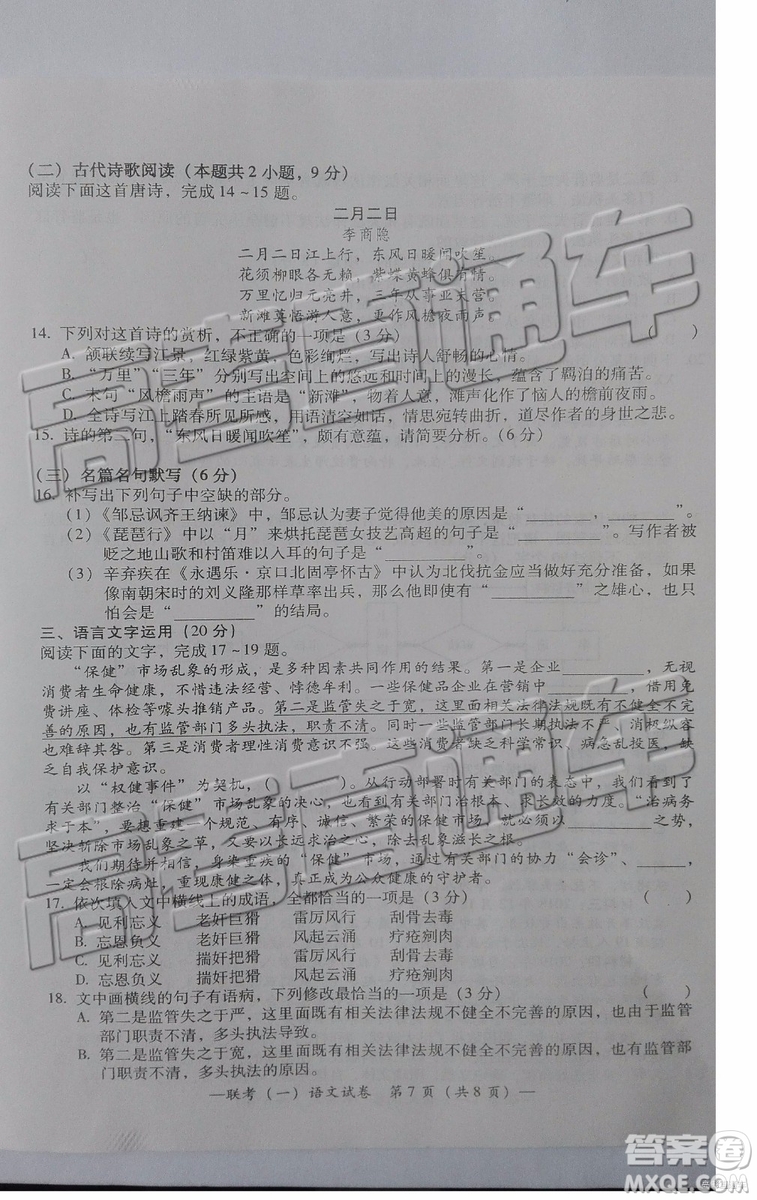 （二）古代诗歌阅读（本题共2小题，9分）
阅读下面这首唐诗，完成14～15题。
二月二日
李商隐
二月二日江上行，东风日暖闻吹笙。
花须柳眼各无赖，紫蝶黄蜂俱有情。
万里忆归元亮井，三年从事亚夫营。
新滩莫悟游人意，更作风檐夜雨声。
14. 下列对这首诗的赏析，不正确的一项是（3分） （ ）
A. 颔联续写江景，红绿紫黄，色彩绚烂，写出诗人舒畅的心情。
B. “万里”“三年”分别写出空间上的悠远和时间上的漫长，蕴含了羁泊的痛苦。
C. 末句“风檐雨声”的主语是“新滩”，物着人意，滩声化作了恼人的檐前夜雨。
D. 全诗写江上踏春所见所感，用语清新流畅，情思宛转曲折，道尽作者的身世之悲。
15. 诗的第二句，“东风日暖闻吹笙”，颇有意蕴，请简要分析。（6分）
（三）名篇名句默写（6分）
16. 补写出下列句子中空缺的部分。
（1）《邹忌讽齐王纳谏》中，邹忌认为妻子觉得他美的原因是“________，________”。
（2）《琵琶行》中以“月”来烘托琵琶女技艺高超的句子是“________”。写作者被
贬之地山歌和村笛难以入耳的句子是“________”。
（3）辛弃疾在《永遇乐·京口北固亭怀古》中认为北伐抗金应当做好充分准备，如果
像南朝宋时的刘义隆那样草率出兵，即使有“________”之雄心，也只
怕会是“________”的结局。
三、语言文字运用（20分）
阅读下面的文字，完成17～19题。
“保健”市场乱象的形成，是多种因素共同作用的结果。第一是企业________，无视
消费者生命健康，不惜违法经营、悖德牟利。一些保健品企业________，用心险恶，以免
费讲座、体检等噱头推销产品。第二是监管失之于宽，这里面既有相关法律法规既有不健全不完
善的原因，也有监管部门多头执法，职责不清。同时一些监管部门长期执法不严、消极纵容，
也难辞其咎。第三是消费者理性消费意识不强。一些消费者缺乏科学常识，病急乱投医，缺乏
自我保护意识。
以“权健事件”为契机，（ ）。从行动部署时有关部门的表态中，我们看到了
有关部门整治“保健”市场乱象的决心，也看到了有关部门治根本、求长效的力度。“治病务
求于本”，要想重建一个规范、有序、诚信、繁荣的保健市场，就既要以________之势，
坚决斩除市场乱象之草，又要以长远之策，除去乱象滋长之根。
我们期待并相信，身染重疾的“保健”市场，通过有关部门的协力“会诊”、________，
一定会根除病灶，重现康健之体，真正成为公众健康的守护者。
17. 依次填入文中横线上的成语，全都恰当的一项是（3分） （ ）
A. 见利忘义 老奸巨猾 雷厉风行 刮骨去毒
B. 忘恩负义 老奸巨猾 风起云涌 疗疮剜肉
C. 见利忘义 揣奸把猾 雷厉风行 刮骨去毒
D. 忘恩负义 揣奸把猾 风起云涌 疗疮剜肉
18. 文中画横线的句子有语病，下列修改最恰当的一项是（3分） （ ）
A. 第二是监管失之于严，这里面既有相关法律法规不健全不完善的原因，也有监管
部门职责不清，多头执法导致。
B. 第二是监管失之于宽，这里面既有相关法律法规不健全不完善的原因，也有监管部
门职责不清，多头执法的原因。
—联考（一）语文试卷 第7页（共8页）—
高考直通车
高考直通车
答案卷
MXQE.COM